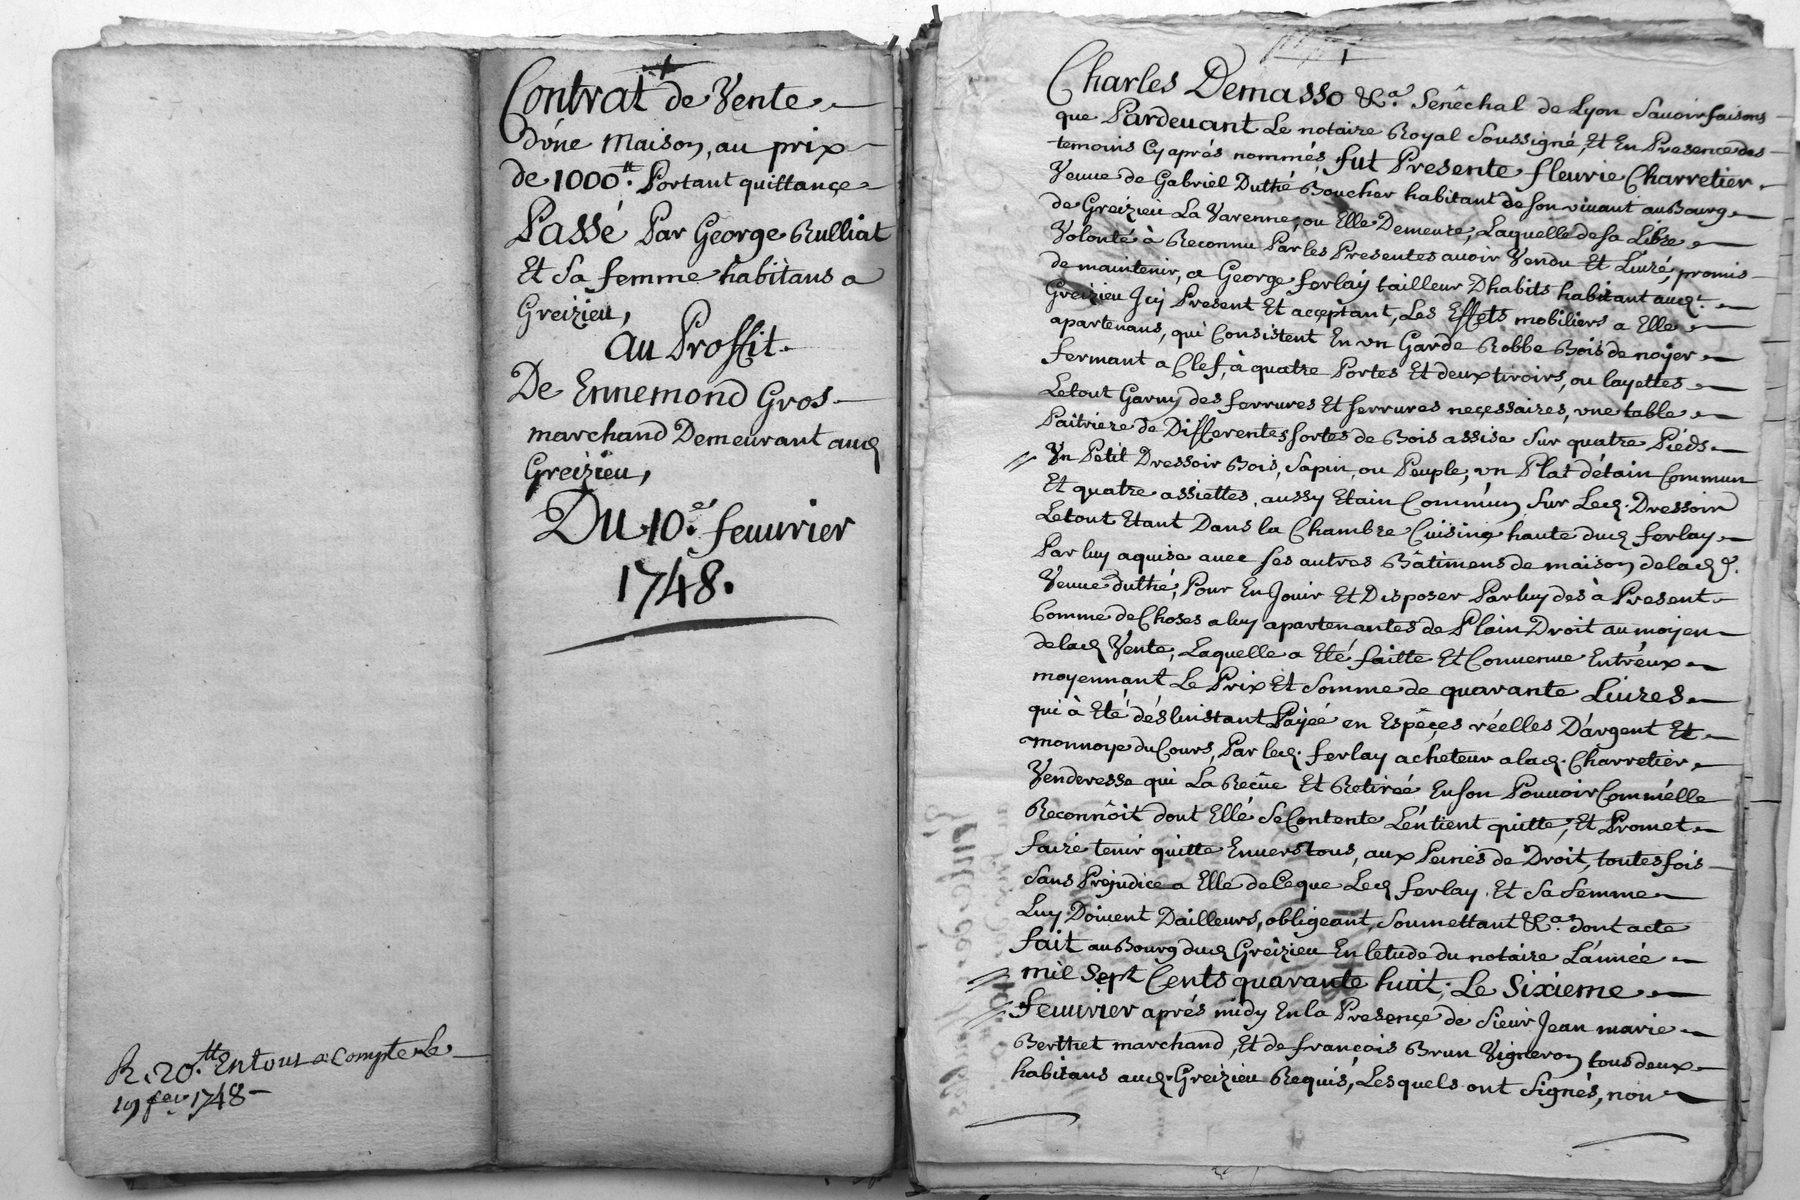 Contrat de Vente
d'une Maison, au prix
de 1000.tt Portant quittance
Passé Par George Rulliat
Et Sa femme habitans a
Greizieu,
au Proffit
De Ennemond Gros
marchand Demeurant aud
Greizieu,
Du 10.e feuurier
1748.
R. 20.tt En tour a Compte Le
19 feu. 1748
Charles Demasso &.a Senêchal de Lyon Sauoir faisons
que Pardeuant Le notaire Royal Soussigné, Et En Presence des
temoins Cy aprés nommés, fut Presente fleurie Charretier
Veuue de Gabriel Duthé Boucher habitant de son viuant au Bourg
de Greizieu La Varenne, ou Elle Demeure, Laquelle de sa Libre
Volonté à Reconnu Par les Presentes auoir Vendu Et Liuré, promis
de maintenir, a George ferlay tailleur Dhabits habitant aud.t
Greizieu Icy Present Et acceptant, Les Effets mobiliers a Elle
apartenans, qui Consistent En vn Garde Robbe Bois de noyer
fermant a Clef, à quatre Portes Et deux tiroirs, ou layettes
Le tout Garny des ferrures Et serrures necessaires, vne table
Paitriere de Differentes sortes de Bois assise sur quatre Pieds
Vn Petit Dressoir Bois, Sapin, ou Peuple, vn Plat détain Commun
Et quatre assiettes aussy Etain Commun Sur Led. Dressoir
Le tout Etant Dans la Chambre Cuisine haute dud ferlay
Par luy aquise auec ses autres Bâtimens de maison de lad.e
Veuue duthé, Pour En Jouir Et Disposer Par luy dès à Present
Comme de Choses a luy apartenantes de Plain Droit au moyen
de lad Vente, Laquelle a Eté faitte Et Conuenue Entréux
moyennant Le Prix Et Somme de quarante Liures
qui à Eté dés linstant Payéé en Espêçes réelles D'argent Et
monnoye du Cours, Par led. ferlay acheteur a lad. Charretier
Venderesse qui La Reçüe Et Retiréé En son Pouuoir Comme élle
Reconnôit dont Ellé se Contente L'én tient quitte, Et Promet
faire tenir quitte Enuers tous, aux Peines de Droit, toutes fois
Sans Prejudice a Elle de Ce que Led ferlay Et Sa femme
Luy Doiuent Dailleurs, obligeant, Soumettant &.a dont acte
fait au Bourg dud Greizieu En letude du notaire L'année
mil Sept Cents quarante huit, Le Sixieme
feuurier aprés midy En la Presence de Sieur Jean marie
Berthet marchand, Et de françois Brun Vigneron tous deux
habitans aud. Greizieu Requis, Lesquels ont Signés, non